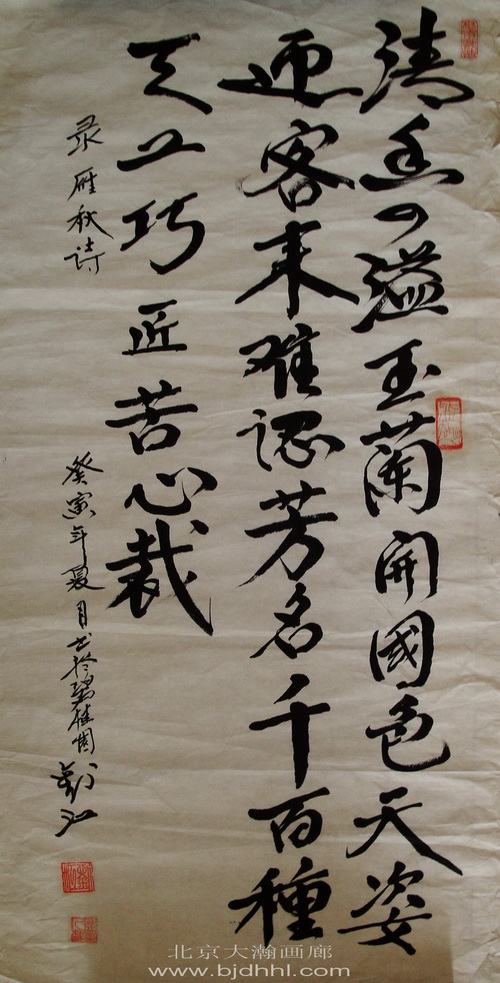 清香四溢玉蘭開國色天姿
迎客来难認芳名千百種
天工巧匠苦心裁
录雁秋诗
癸寅年夏月书於碧桂園
北京大瀚画廊
www.bjdhhl.com